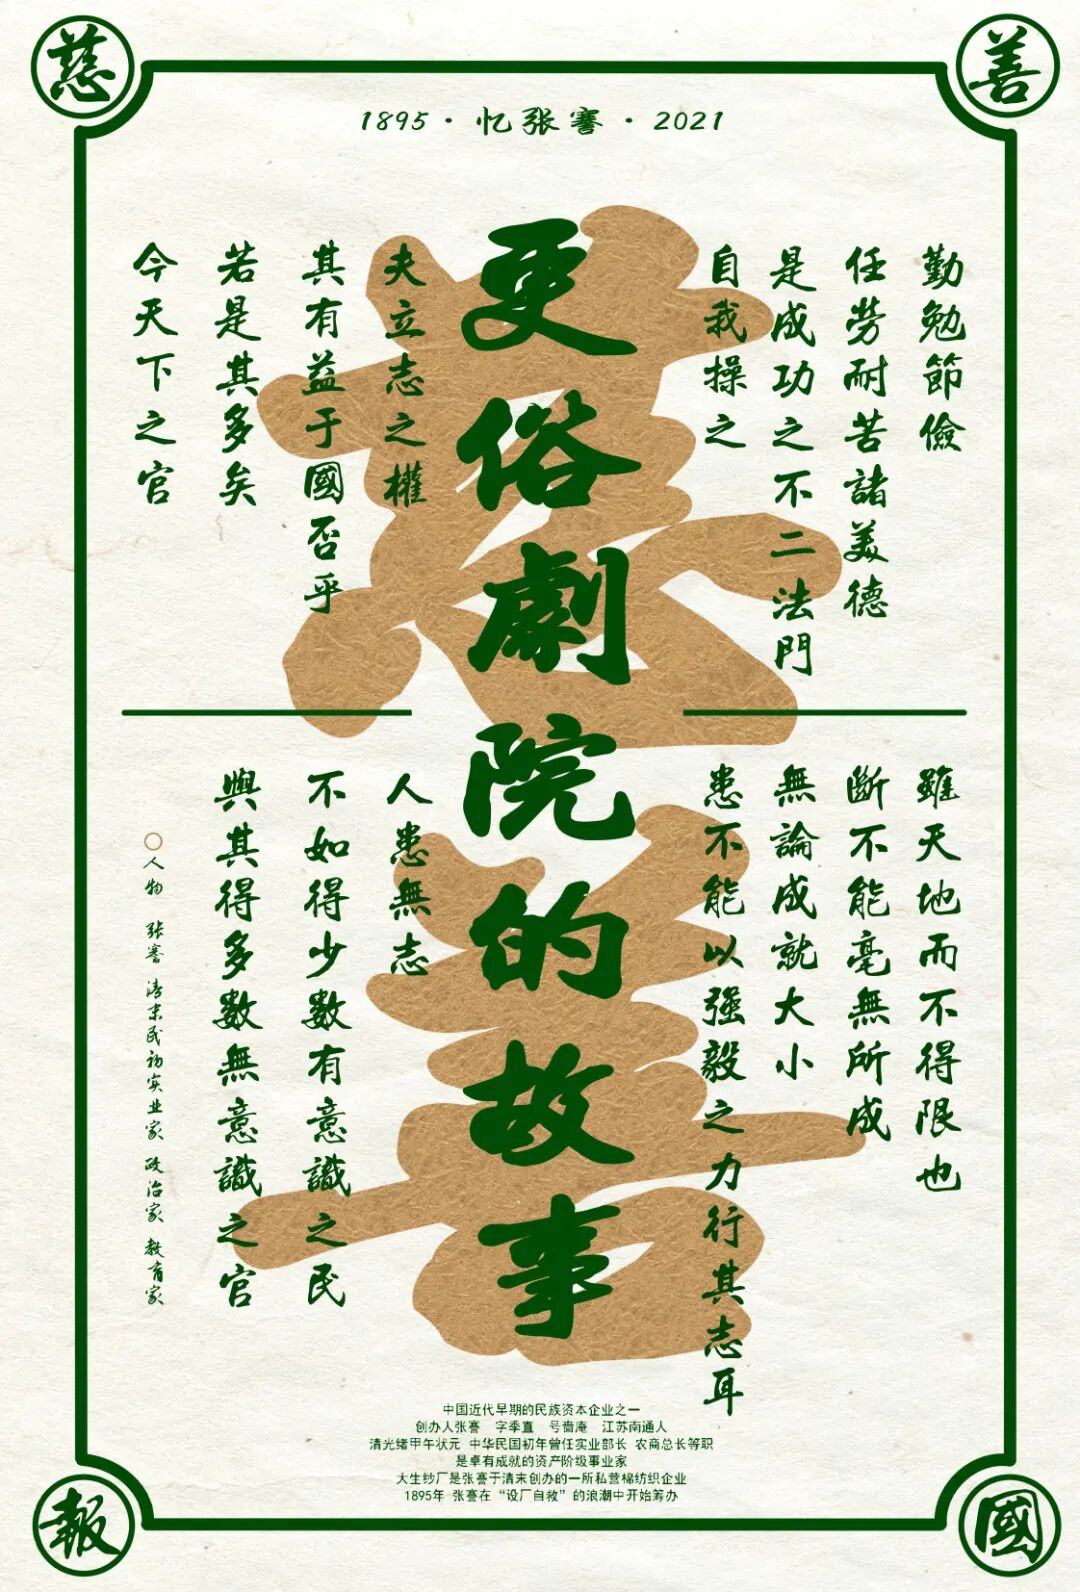 慈
善
1895·忆张謇·2021
更俗劇院的故事
勤勉節儉
任勞耐苦諸美德
是成功之不二法門
自我操之
夫立志之權
其有益于國否乎
若是其多矣
今天下之官
雖天地而不得限也
斷不能毫無所成
無論成就大小
患不能以强毅之力行其志耳
人患無志
不如得少數有意識之民
與其得多數無意識之官
○人物 張謇 清末民初实业家 政治家 教育家
中国近代早期的民族资本企业之一
创办人张謇 字季直 号啬庵 江苏南通人
清光绪甲午状元 中华民国初年曾任实业部长 农商总长等职
是卓有成就的资产阶级事业家
大生纱厂是张謇于清末创办的一所私营棉纺织企业
1895年 张謇在“设厂自救”的浪潮中开始筹办
報
國
慈
善